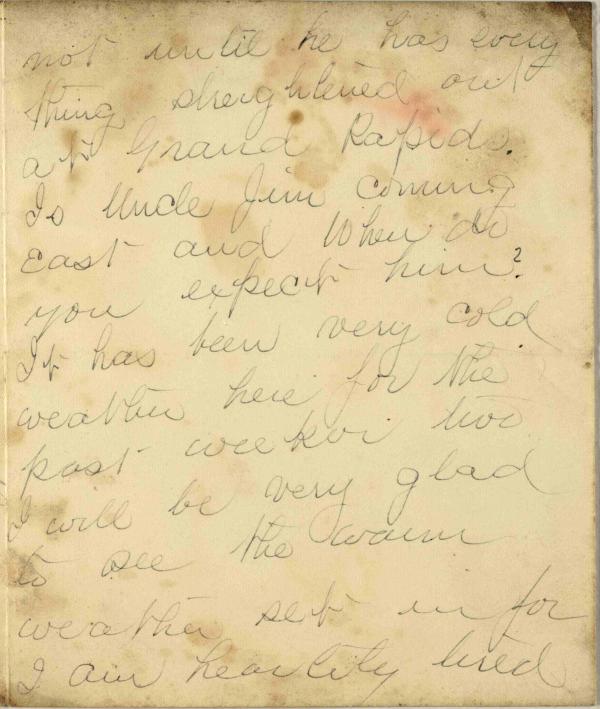 not until he has every
thing streightened out
at Grand Rapids.
Is Uncle Jim coming
east and When do
you expect him?
It has been very cold
weather here for the
past week or two
I will be very glad
to see the warm
weather set in for
I am heartily tired